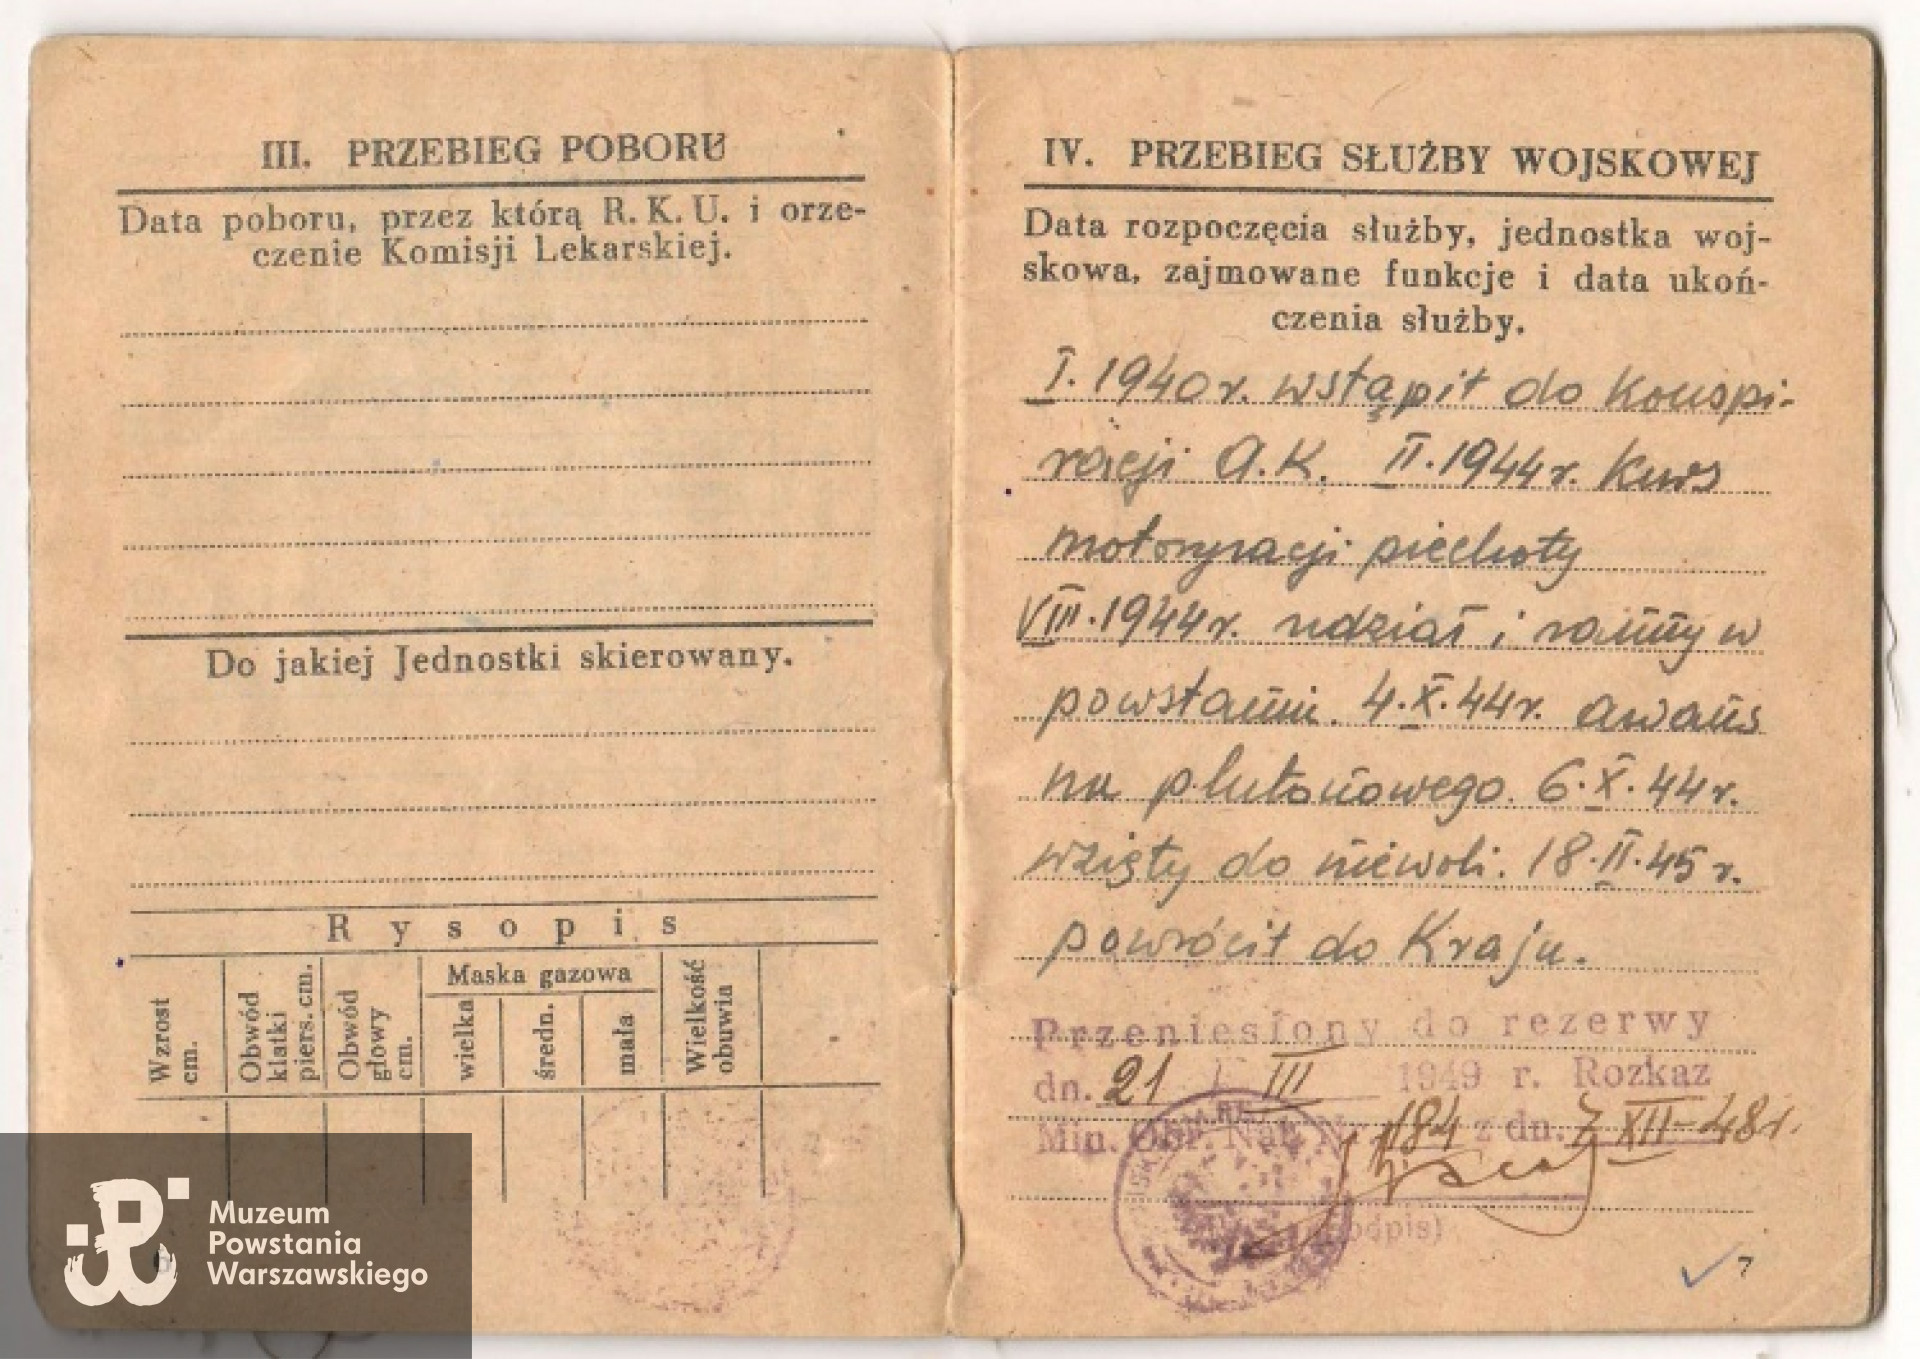 III. PRZEBIEG POBORU
Data poboru, przez którą R. K. U. i orze-
czenie Komisji Lekarskiej.
Do jakiej Jednostki skierowany.
Rysopis
Wzrost cm.
Obwód klatki piers. cm.
Obwód głowy cm.
Maska gazowa
wielka
średn.
mała
Wielkość obuwia
6
Muzeum
Powstania
Warszawskiego
IV. PRZEBIEG SŁUŻBY WOJSKOWEJ
Data rozpoczęcia służby, jednostka woj-
skowa, zajmowane funkcje i data ukoń-
czenia służby.
I. 1940 r. wstąpił do Konspi-
racji A.K. II. 1944 r. Kurs
motoryzacji piechoty
VIII. 1944 r. udział i ranny w
powstaniu. 4.X.44 r. awans
na plutonowego. 6.X.44 r.
wzięty do niewoli. 18.II.45 r.
powrócił do Kraju.
Przeniesiony do rezerwy
dn. 21 III 1949 r. Rozkaz
Min. Obr. Nar. Nr 184 z dn. 7 XII-48 r.
(podpis)
7